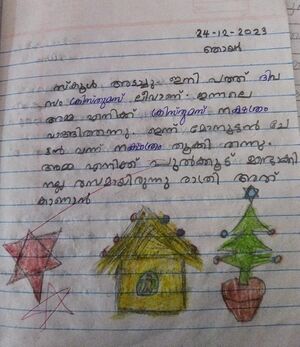 24-12-2023
ഞായർ
സ്കൂൾ അടച്ചു ഇനി പത്ത് ദിവ
സം ക്രിസ്തുമസ് ലീവാണ്. ഇന്നലെ
അമ്മ എനിക്ക് ക്രിസ്തുമസ് നക്ഷത്രം
വാങ്ങിത്തന്നു. ഇന്ന് മോനൂട്ടൻ ചേ
ട്ടൻ വന്ന് നക്ഷത്രം തൂക്കി തന്നു.
അമ്മ എനിക്ക് പുൽക്കൂട് ഉണ്ടാക്കി
നല്ല രസമായിരുന്നു രാത്രി അത്
കാണാൻ